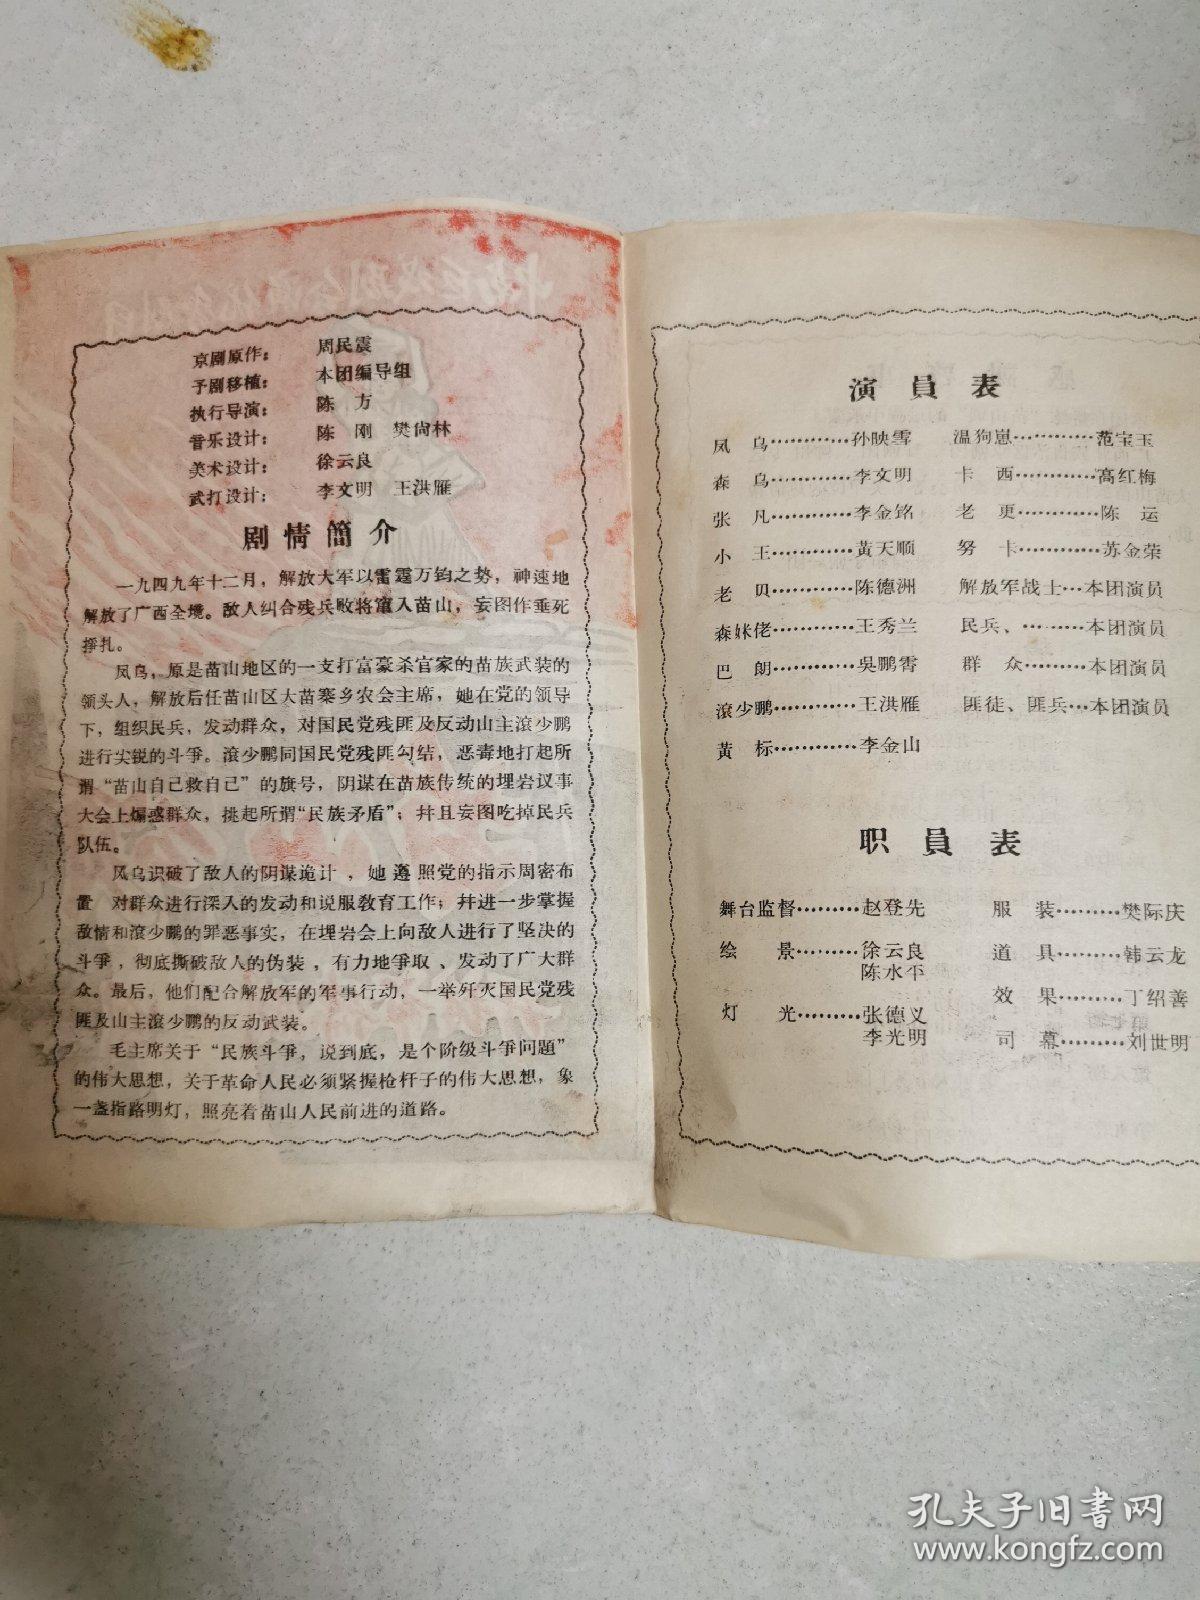 京剧原作：　周民震
予剧移植：　本团编导组
执行导演：　陈　方
音乐设计：　陈　刚　樊尙林
美术设计：　徐云良
武打设计：　李文明　王洪雁
剧情簡介
一九四九年十二月，解放大军以雷霆万钧之势，神速地
解放了广西全境。敌人纠合残兵败将窜入苗山，妄图作垂死
挣扎。
凤乌，原是苗山地区的一支打富豪杀官家的苗族武装的
领头人，解放后任苗山区大苗寨乡农会主席，她在党的领导
下，组织民兵，发动群众，对国民党残匪及反动山主滚少鹏
进行尖锐的斗爭。滚少鹏同国民党残匪勾结，恶毒地打起所
谓“苗山自己救自己”的旗号，阴谋在苗族传统的埋岩议事
大会上煽惑群众，挑起所谓“民族矛盾”；幷且妄图吃掉民兵
队伍。
凤乌识破了敌人的阴谋诡计，她遵照党的指示周密布
置　对群众进行深入的发动和说服敎育工作；幷进一步掌握
敌情和滚少鹏的罪恶事实，在埋岩会上向敌人进行了坚决的
斗爭，彻底撕破敌人的伪装，有力地爭取、发动了广大群
众。最后，他们配合解放军的军事行动，一举歼灭国民党残
匪及山主滚少鹏的反动武装。
毛主席关于“民族斗爭，说到底，是个阶级斗爭问題”
的伟大思想，关于革命人民必须紧握枪杆子的伟大思想，象
一盏指路明灯，照亮着苗山人民前进的道路。
演員表
凤　乌…………孙映雪　温狗崽…………范宝玉
森　乌…………李文明　卡　西…………高红梅
张　凡…………李金铭　老　更…………陈　运
小　王…………黃天顺　努　卡…………苏金荣
老　贝…………陈德洲　解放军战士…本团演员
森妹佬…………王秀兰　民兵、………本团演员
巴　朗…………吳鹏霄　群　众………本团演员
滚少鹏…………王洪雁　匪徒、匪兵…本团演员
黃　标…………李金山
职員表
舞台监督………赵登先　服　装………樊际庆
绘　景………徐云良　道　具………韩云龙
陈水平
效　果………丁绍善
灯　光………张德义
李光明　司　幕………刘世明
孔夫子旧书网
www.kongfz.com